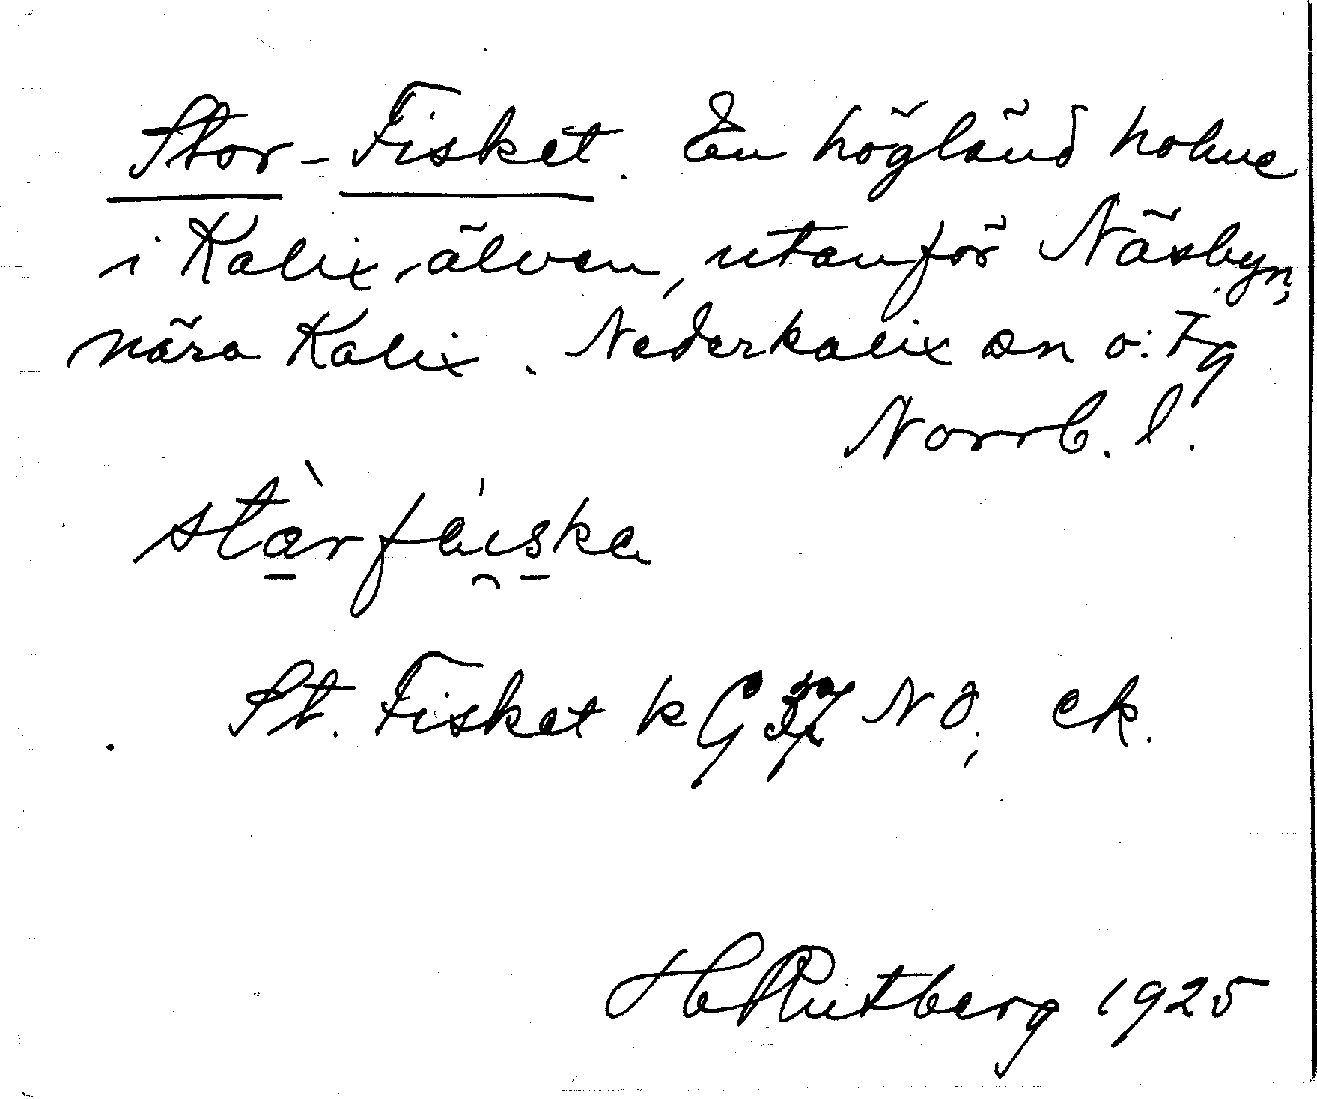 Stor-Fisket. En högländ holme
i Kalix älven, utanför Näsbyn,
nära Kalix. Nederkalix sn o. Tg
Norrb. l.
St. Fisket k G 37 NO, ek.
H Rutberg 1925